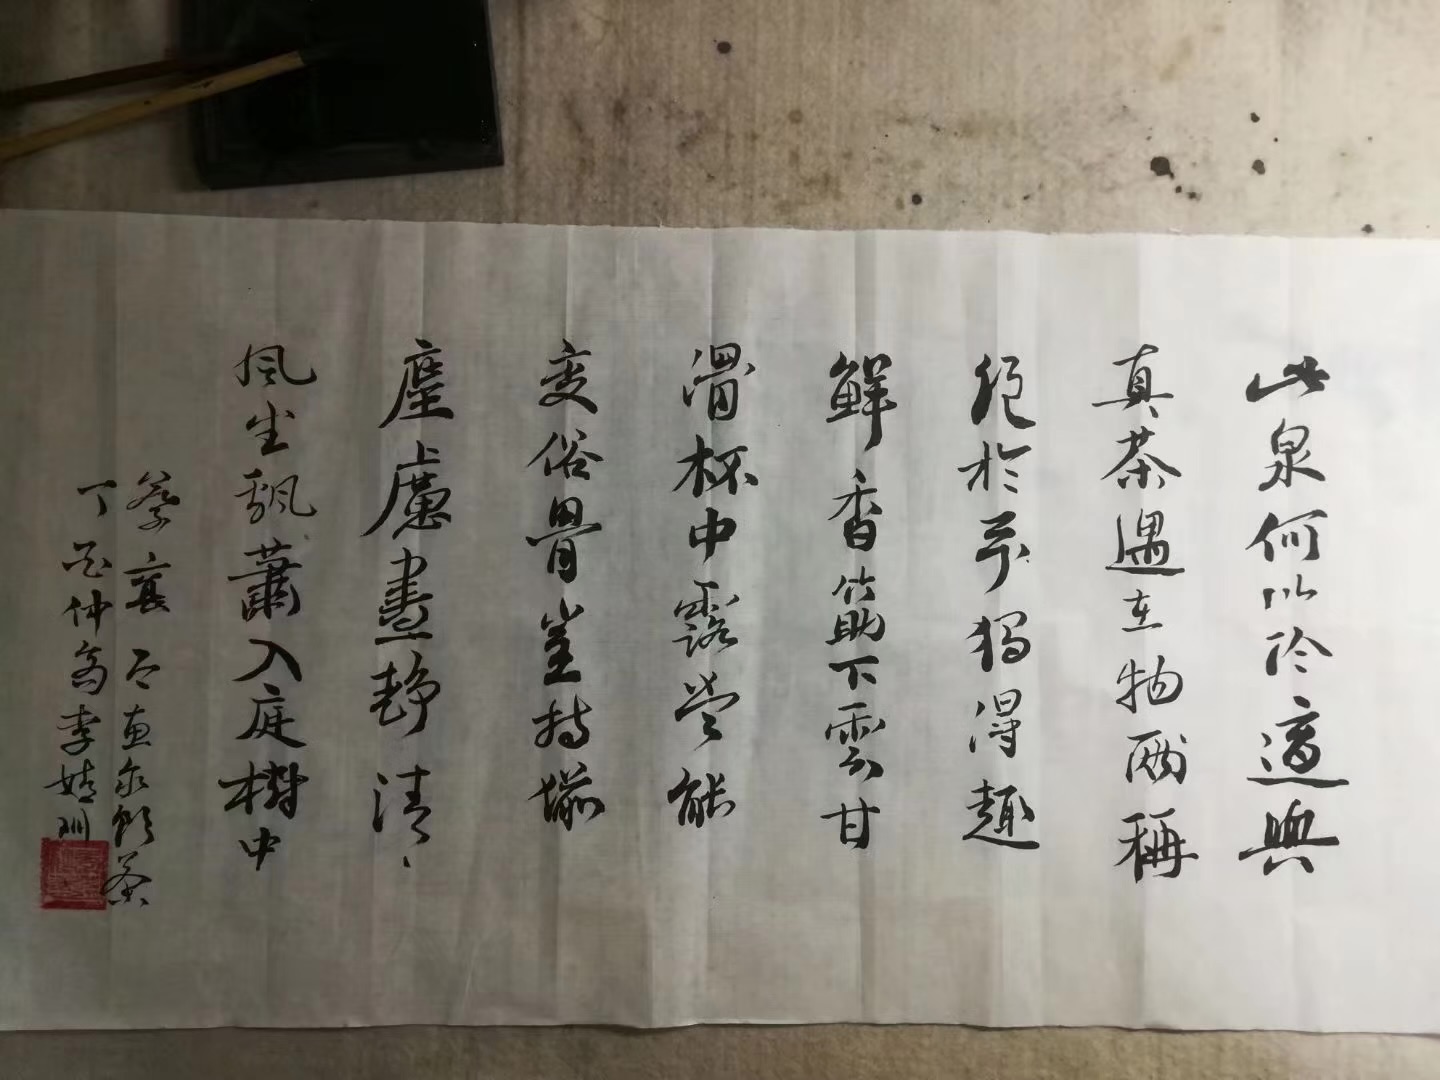 此泉何以珍適與
真茶遇在物兩稱
絕於予獨得趣
鮮香箸下雲甘
滑杯中露當能
變俗骨豈特湔
塵慮晝靜清
風生飄蕭入庭樹中
蔡襄 泉 茶
丁 仲 李